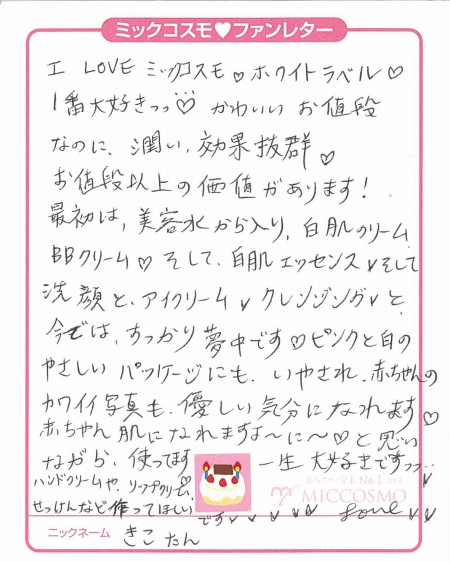 ミックコスモ♥ファンレター
I LOVE ミックコスモ♡ホワイトラベル♡
1番大好きっっ♡ かわいい お値段
なのに、潤い、効果抜群♡
お値段以上の価値があります!
最初は、美容水から入り、白肌クリーム
BBクリーム♡ そして、白肌エッセンス♥そして
洗顔と、アイクリーム♥クレンジング♥と
今では、すっかり夢中です♡ピンクと白の
やさしい パッケージにも、いやされ、赤ちゃんの
カワイイ写真も、優しい気分になれます♡
赤ちゃん肌になれますよ〜に〜♡と思い
ながら、使ってます♡ 一生 大好きですっっ…
ハンドクリームや、リップクリーム、
せっけんなど作ってほしい
です♥♥♥♥♥ love ♥♥
No.1
MICCOSMO
ニックネーム きこたん